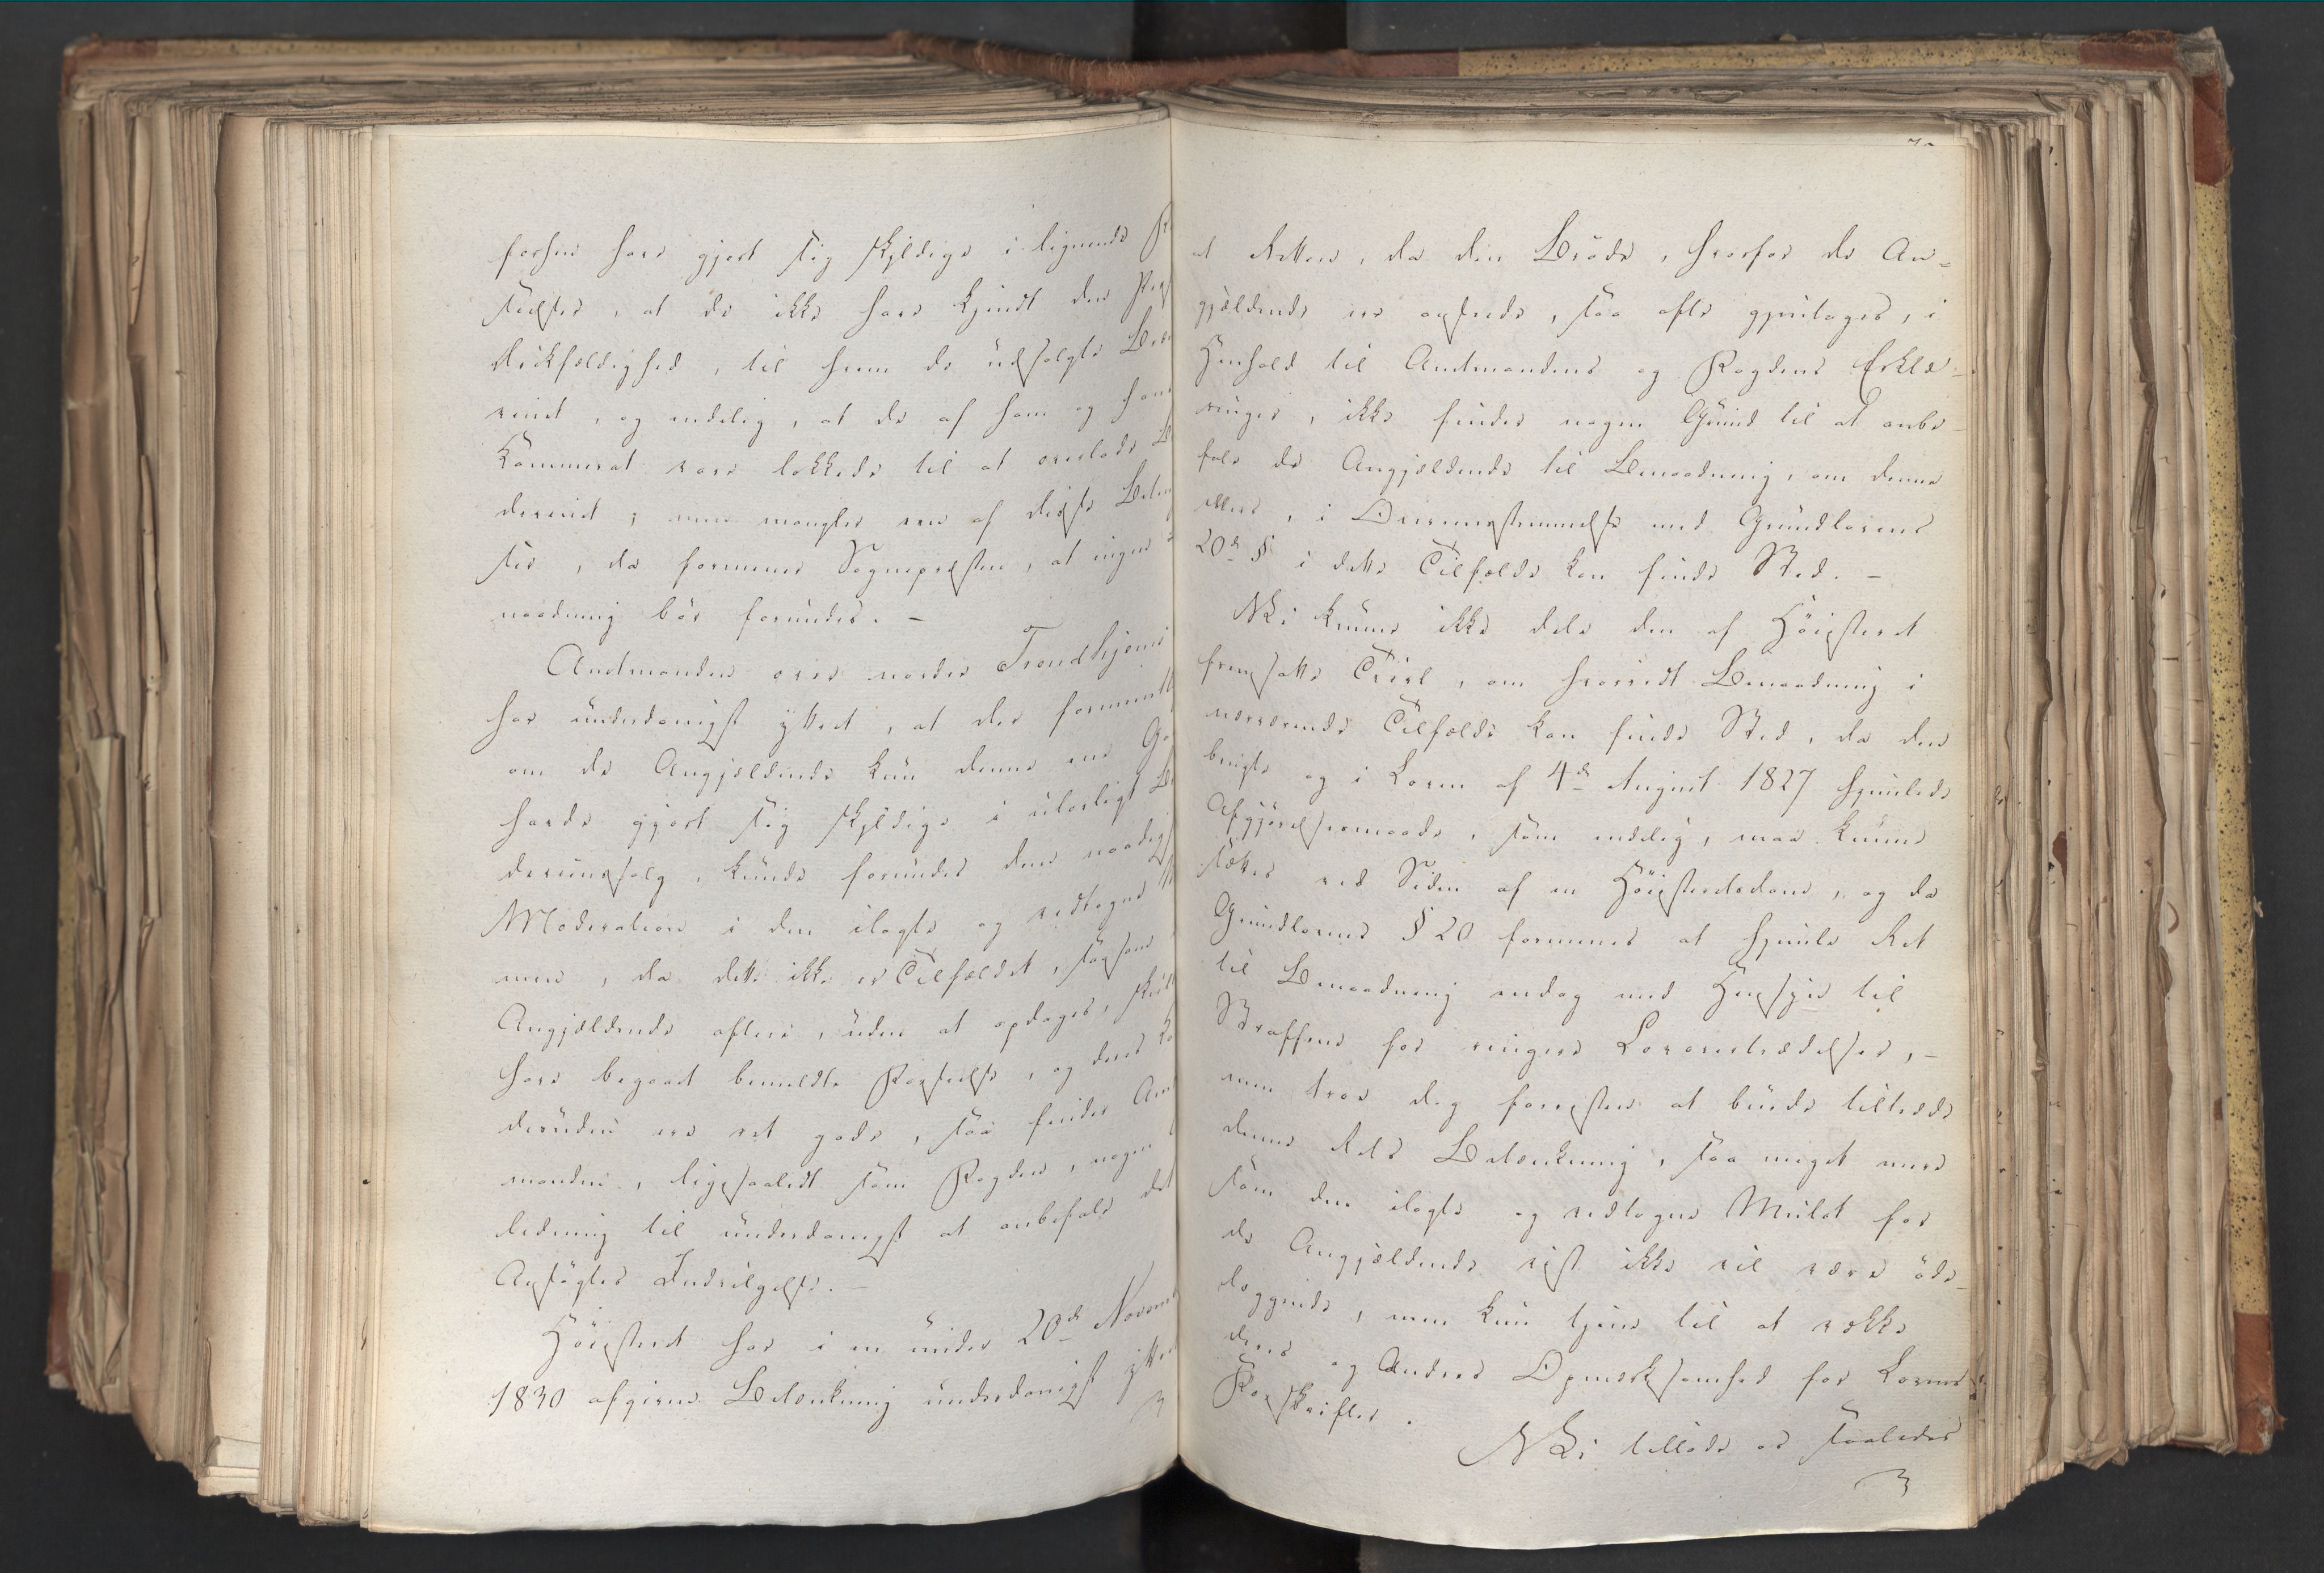 forhen have gjort sig skyldige i lignende
seelser, at de ikke have kjendt den
Trickfældighed, til hvem de udsolgte Bræn
viint, og endelig, at de af ham og hans
Kammerat vare lokkede til at overlade
deviint; men mangler een af disse Beting
ser, da formener Sognepræsten, at ingen
naadning bør forundes. –
Amtmanden over nordre Trondhjems
har underdanigst yttret, at der formentl
om de Angjældende kun denne ene Ga
havde gjort sig skyldige i ulovligt Br
deviinssalg, kunde forundes dem naadigst
Moderation i den ilagte og vedtagne
men, da dette ikke er Tilfældet, saasom
Angjældende oftere, uden at opdages, skul
have begaaet bemeldte Forseelse, og deres
desuden ere ret gode, saa finder Amt
manden, ligesaalidt som Fogden, nogen
ledning til underdanigst at anbefale det
Ansøgtes Indvilgelse. –
Høiesteret har i en under 20de Novemb
1830 afgiven Betænkning underdanigst yttret
at Retten, da den Brøde, hvorfor de An=
gjældende ere anseede, saa ofte gjentages, i
Henhold til Amtmandens og Fogdens Erklæ-
ringer, ikke finder nogen Grund til at anbe-
fale de Angjældende til Benaadning, om denne
ellers, i Overensstemmelse med Grundlovens
20de § i dette Tilfælde kan finde Sted. –
Vi kunne ikke dele den af Høiesteret
fremsatte Tvivl, om hvorvidt Benaadning i
nærværende Tilfælde kan finde Sted, da den
brugte og i Loven af 4de August 1827 hjemlede
Afgjørelsesmaade, som endelig, maa kunne
sættes ved Siden af en Høiesteretsdom, og da
Grundlovens § 20 formenes at hjemle Ret
til Benaadning endog med Hensyn til
Straffene for ringere Lovovertrædelser, –
men troe dog forresten at burde tiltræde
denne Rets Betænkning, saa meget mere
som den ilagte og vedtagne Mulct for
de Angjældende vist ikke vil være øde-
læggende, men kun tjene til at vække
deres og Andres Opmærksomhed for Lovens
Forskrifter.
Vi tillade os saaledes